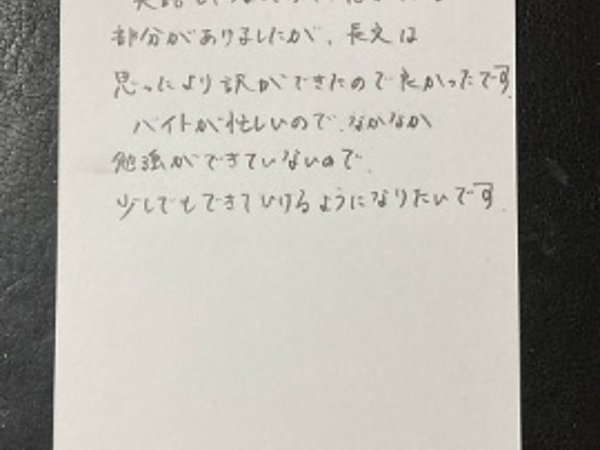 部分がありましたが、長文は
思ったより訳ができたので良かったです。
バイトが忙しいので、なかなか
勉強ができていないので、
少しでもできていけるようになりたいです。